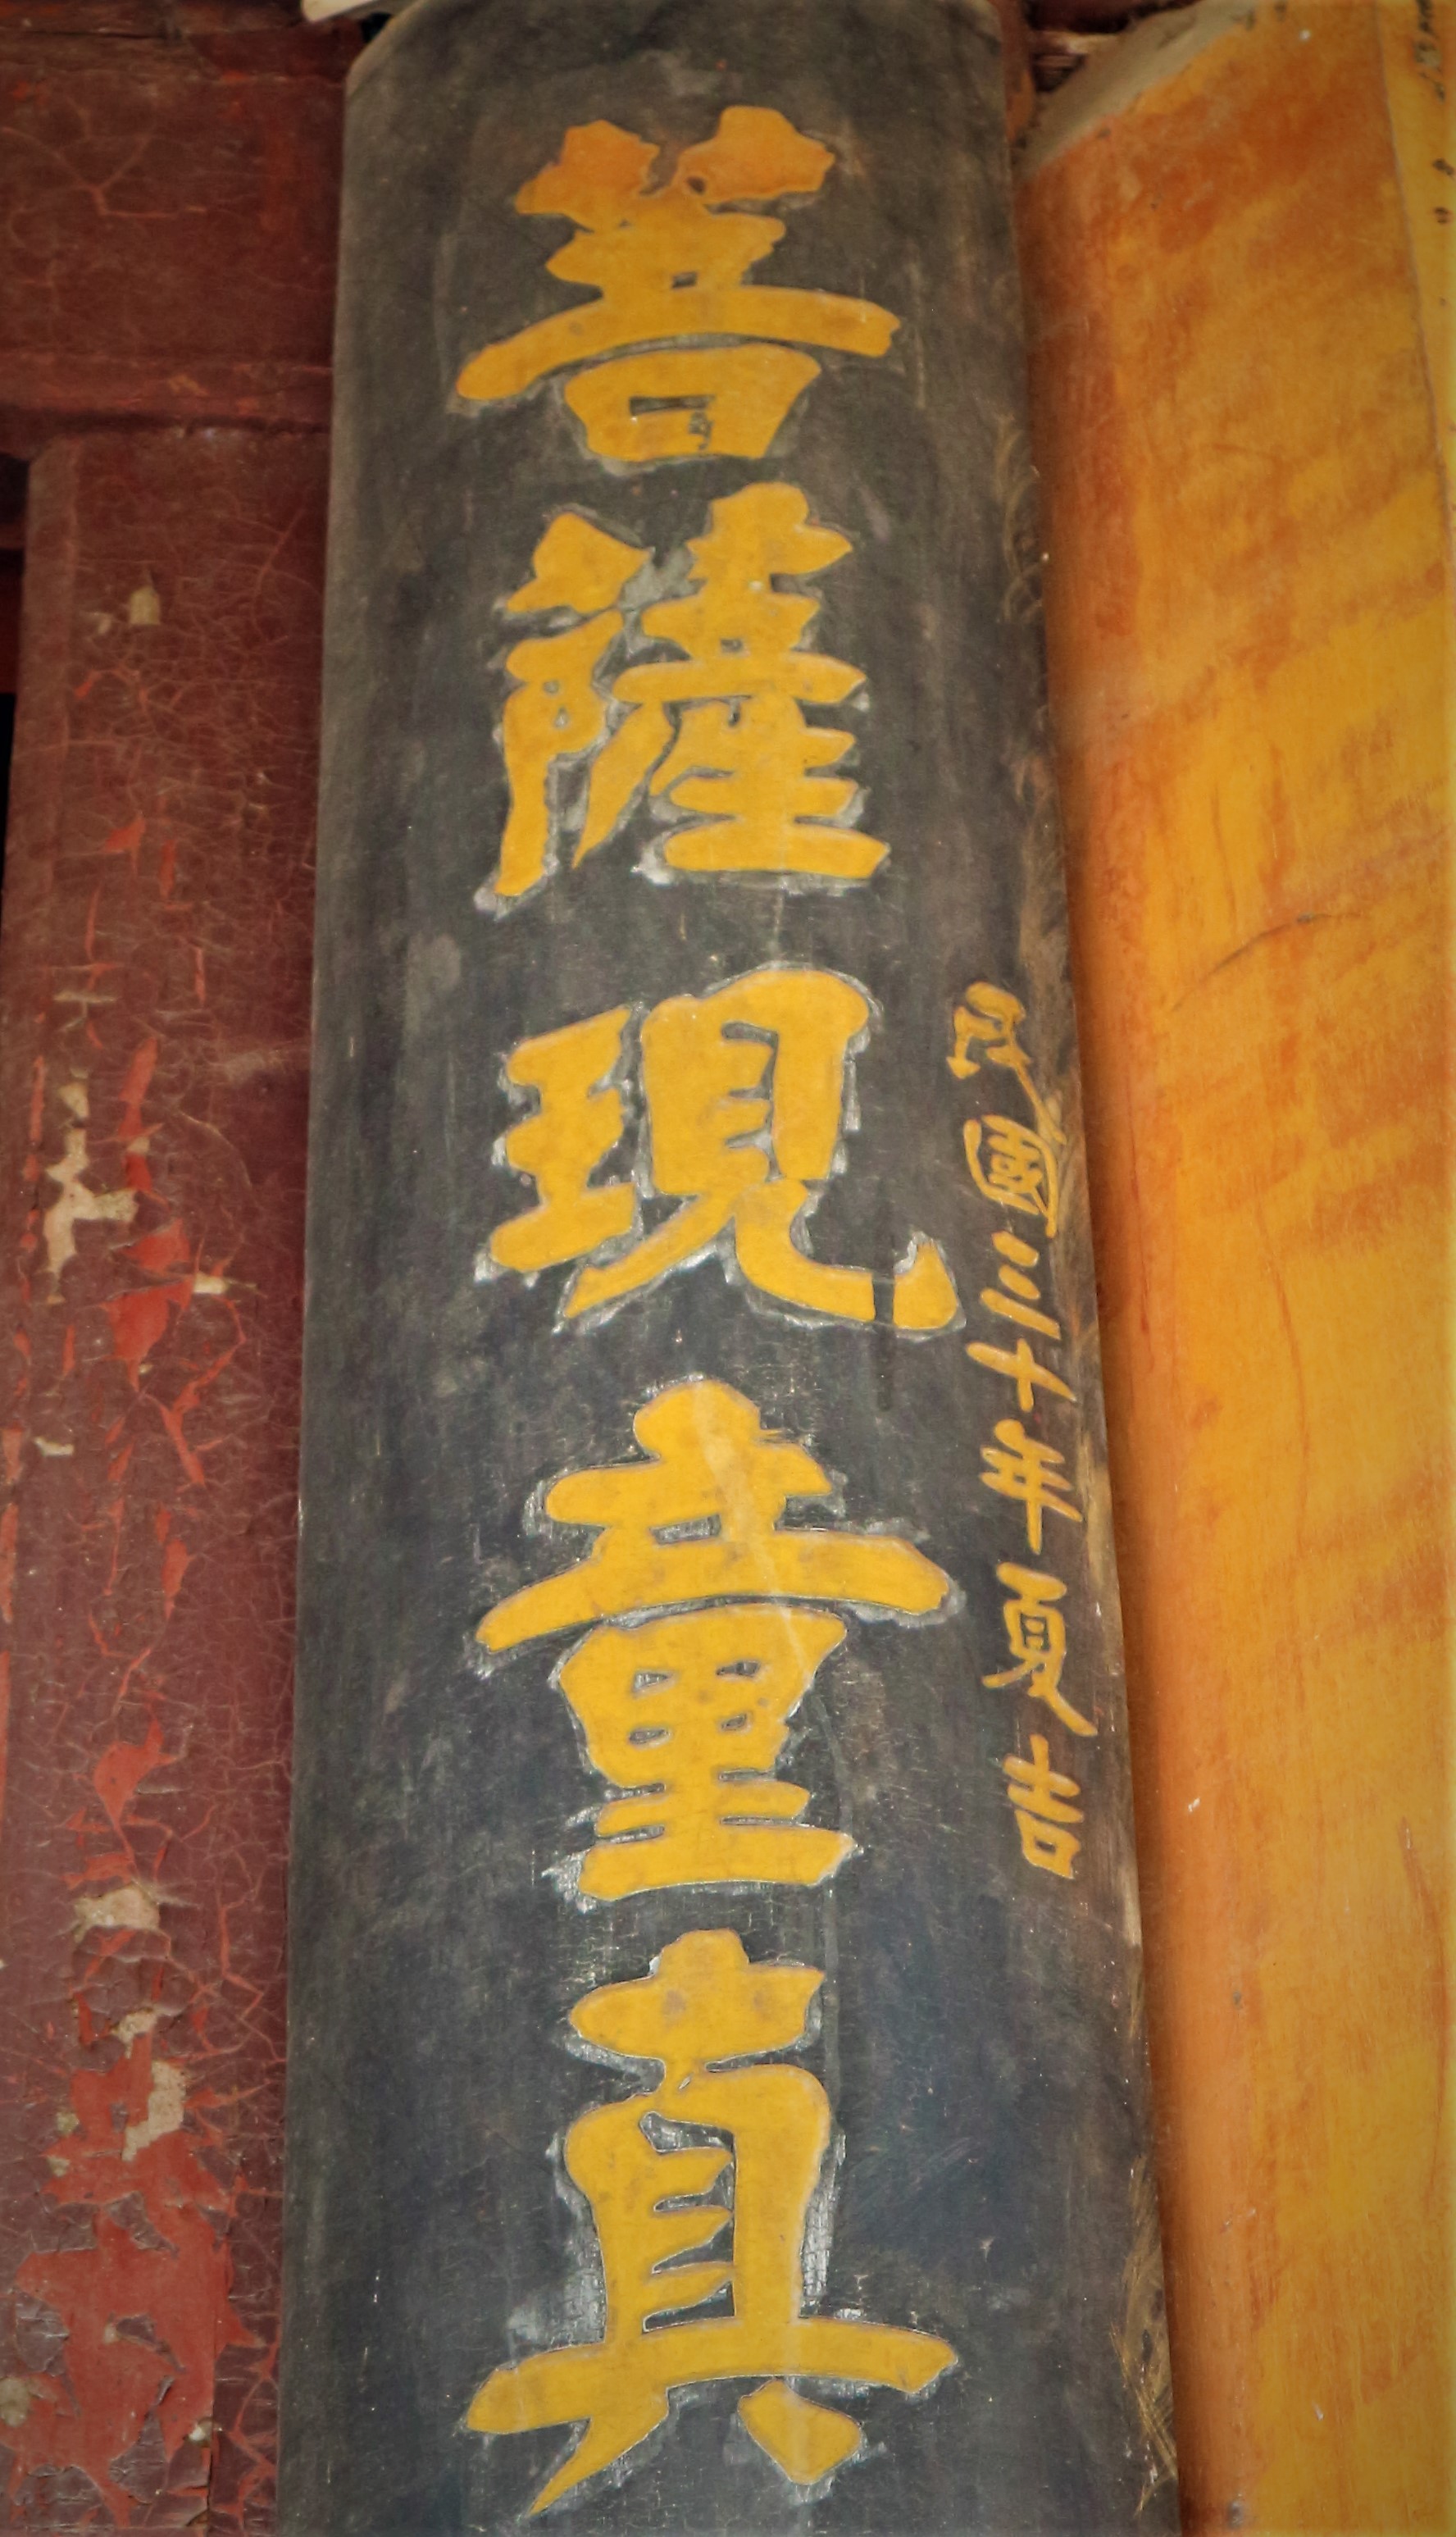 民國三十年夏吉
菩薩現童真